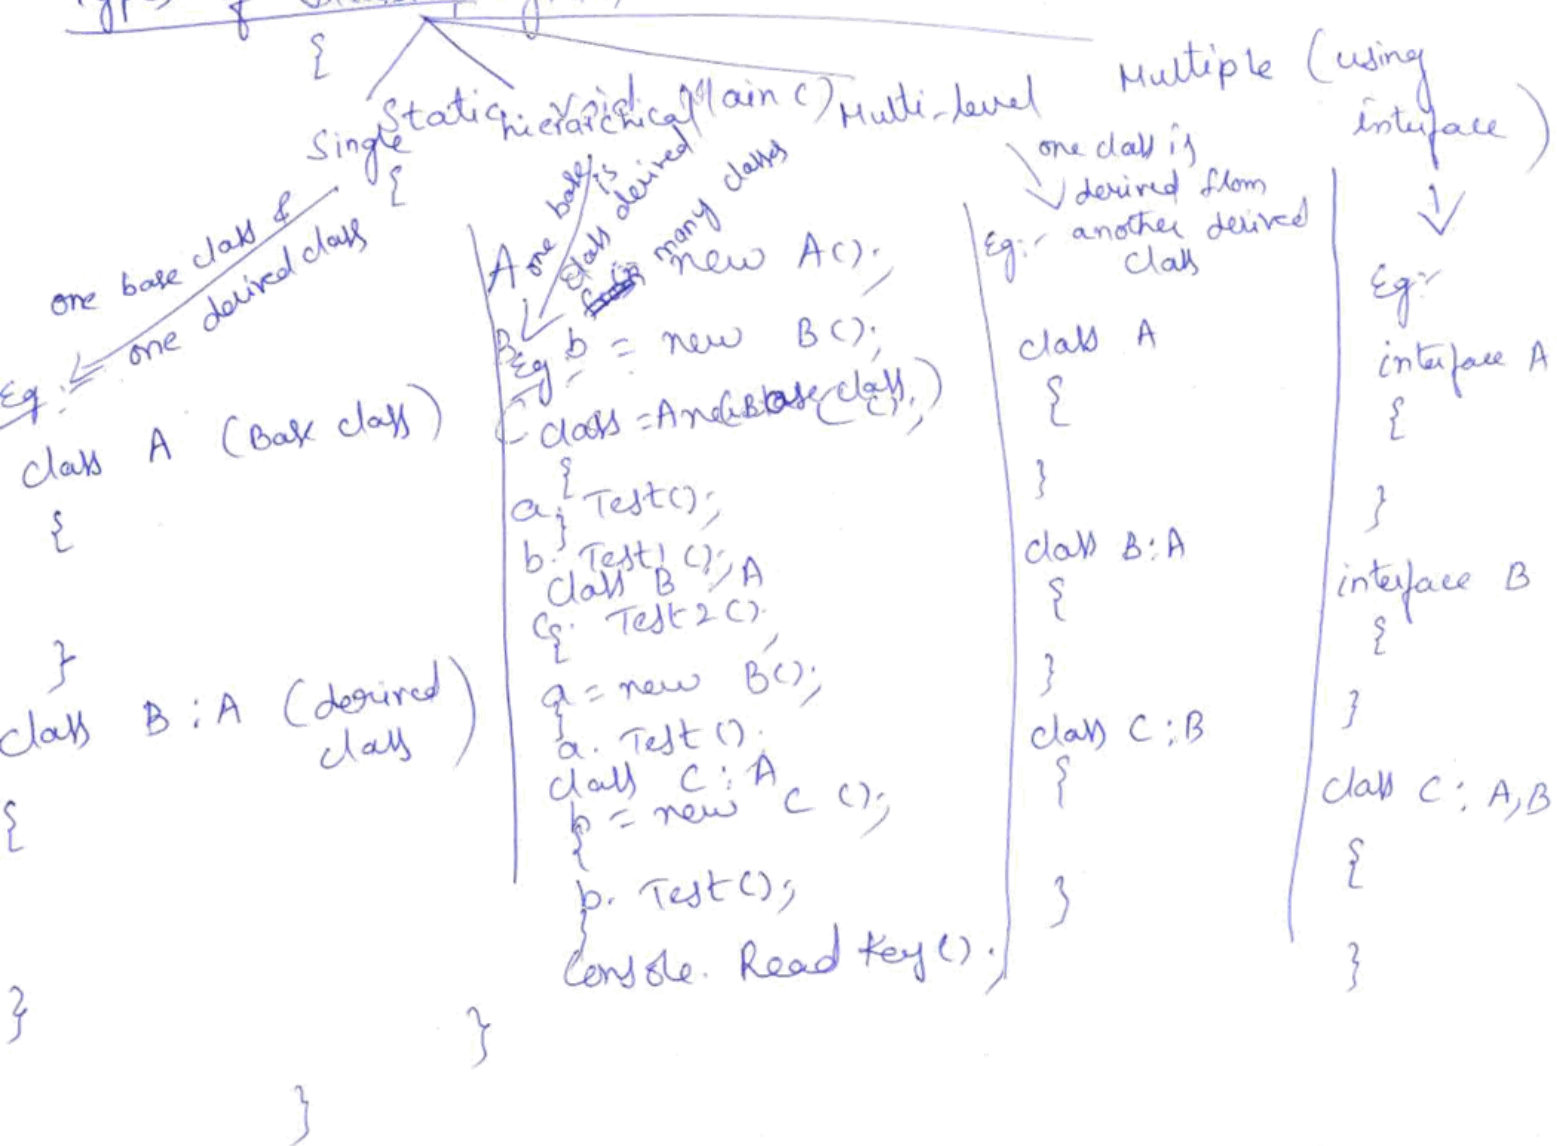 Types of
{
Single
Static void Main()
hierarchical
Multi-level
Multiple (using
interface)
{
one base class &
one derived class
Eg:-
class A (Base class)
{
}
class B : A (derived
class)
{
}
one base
class is
derived
in many classes
Eg:-
class A (Base class)
{
}
class B : A
{
}
class C : A
{
}
A new A();
B b = new B();
C = new C();
a. Test();
b. Test1();
c. Test2();
a = new B();
a. Test();
b = new C();
b. Test();
Console. ReadKey();
}
}
one class is
derived from
another derived
class
Eg:-
class A
{
}
class B : A
{
}
class C : B
{
}
Eg:-
interface A
{
}
interface B
{
}
class C : A, B
{
}